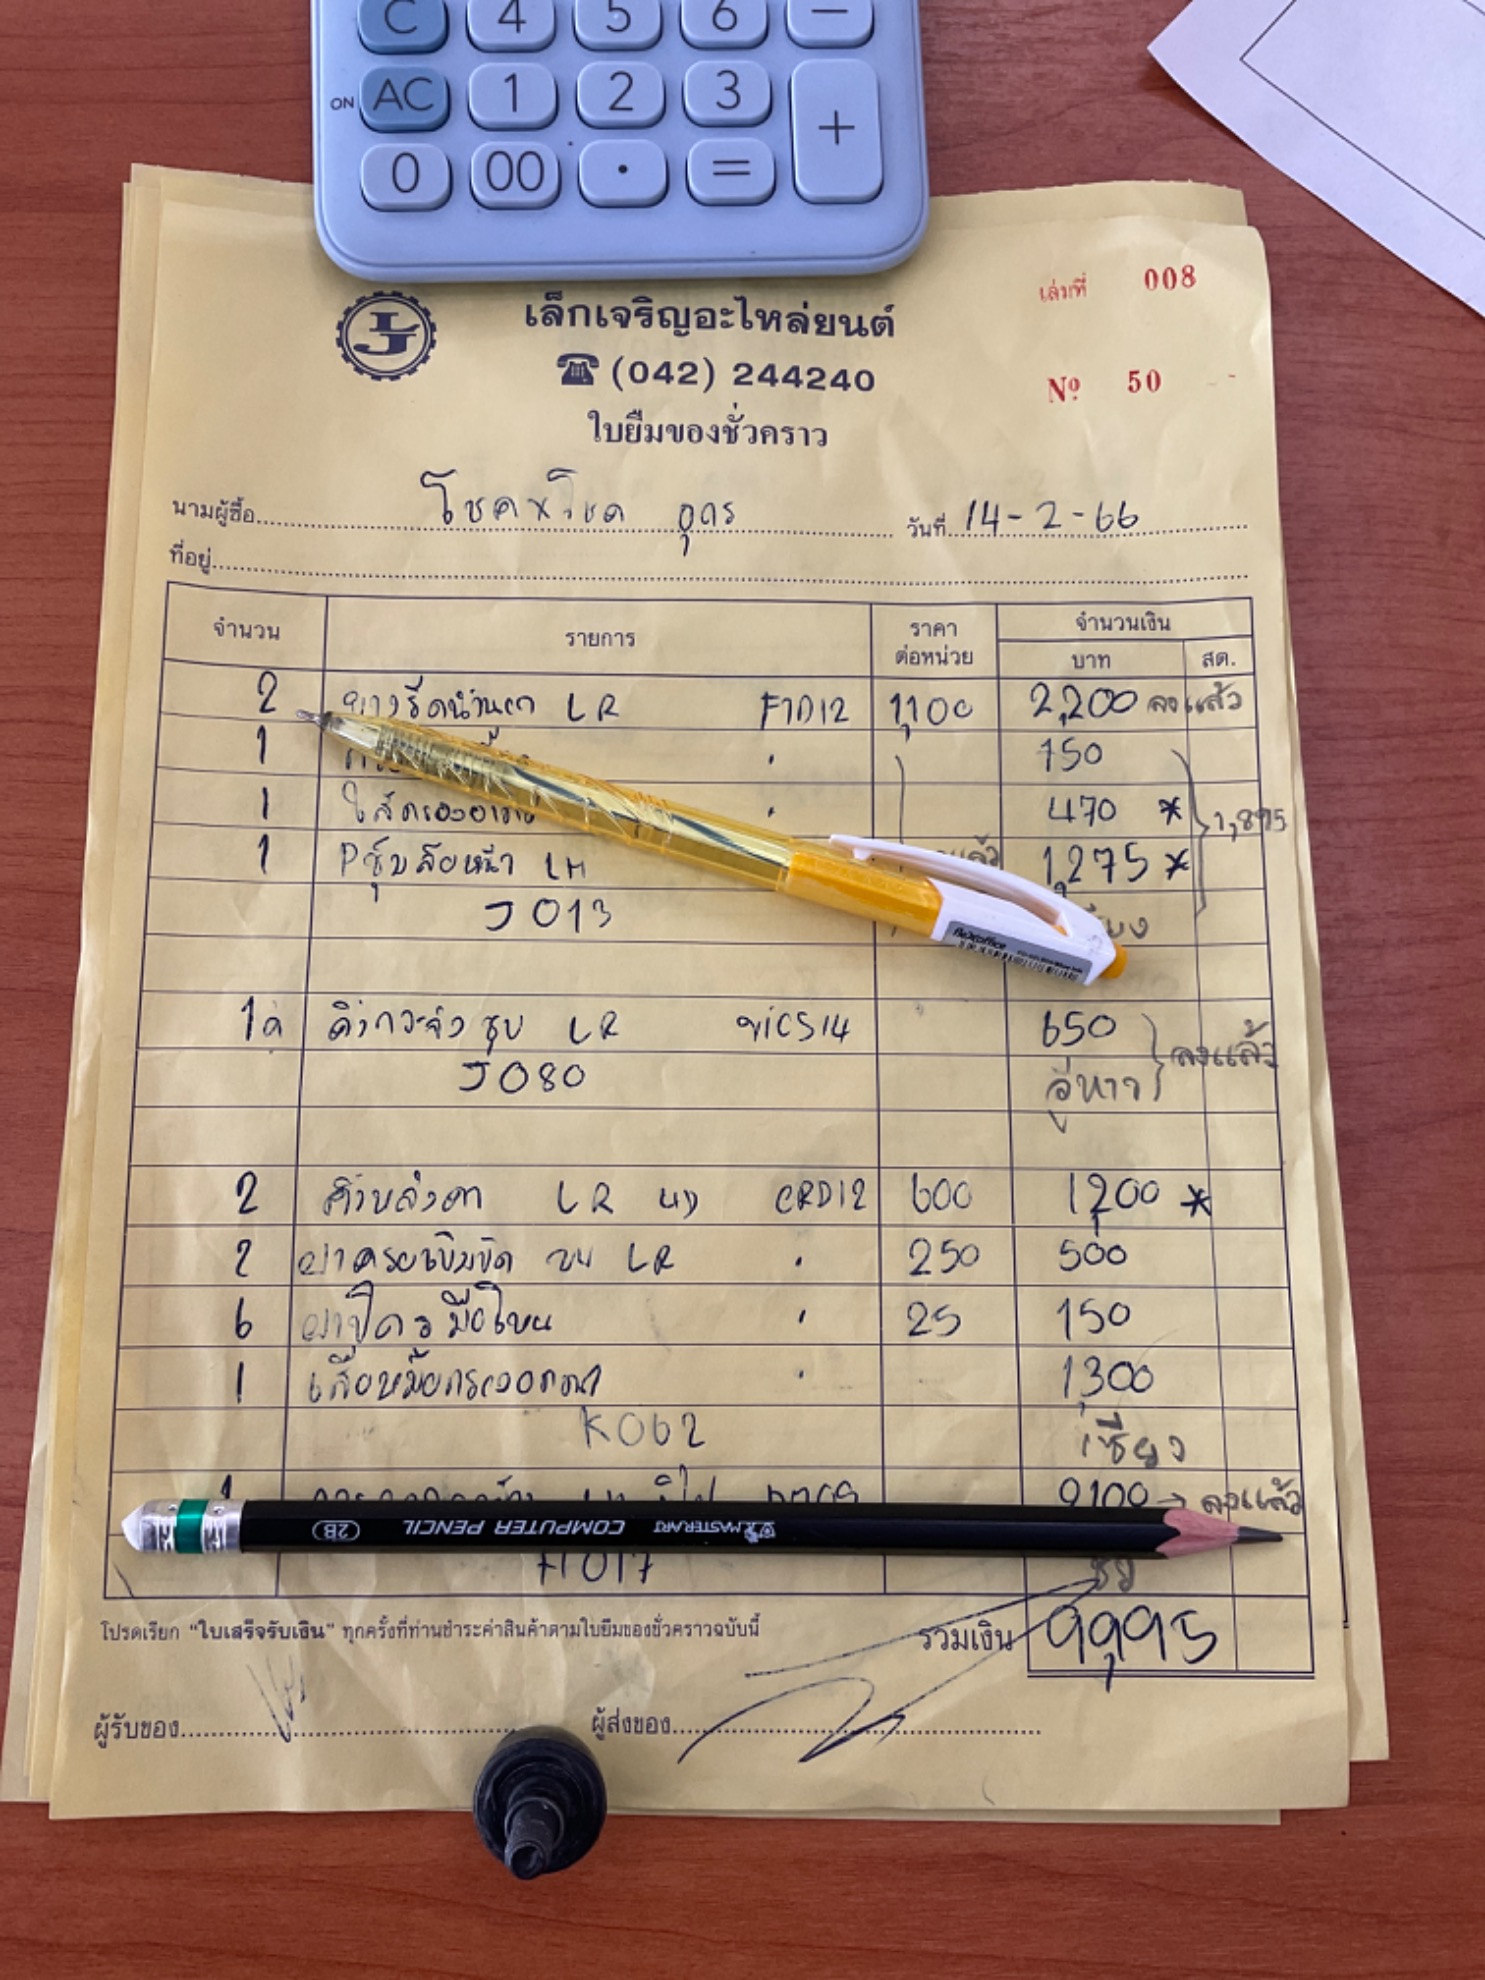 C 4 5 6 −
ON AC 1 2 3 +
0 00 . =
เล็กเจริญอะไหล่ยนต์
เล่มที่ 008
☎ (042) 244240
Nº 50
ใบยืมของชั่วคราว
นามผู้ซื้อ โชค อุดร วันที่ 14-2-66
ที่อยู่
จำนวน รายการ ราคาต่อหน่วย จำนวนเงิน
บาท สต.
2 ยางรีดน้ำนอก LR FD12 1,100 2,200 ลงแล้ว
1 750
1 ไส้กรองอากาศ 470 * 1,895
1 Pซุ้มล้อหน้า LH 1,275 *
J013
1ค คิ้วกระจังชุบ LR VICS14 650 ลงแล้ว
J080 อู่หาว
2 LR CRD12 600 1200 *
2 LR 250 500
6 25 150
1 เสื้อหม้อกรองอากาศ 1,300
K062 เซียง
2100 → ลงแล้ว
2B COMPUTER PENCIL MASTERART
H017
โปรดเรียก "ใบเสร็จรับเงิน" ทุกครั้งที่ท่านชำระค่าสินค้าตามใบยืมของชั่วคราวฉบับนี้
รวมเงิน 9,995
ผู้รับของ ผู้ส่งของ